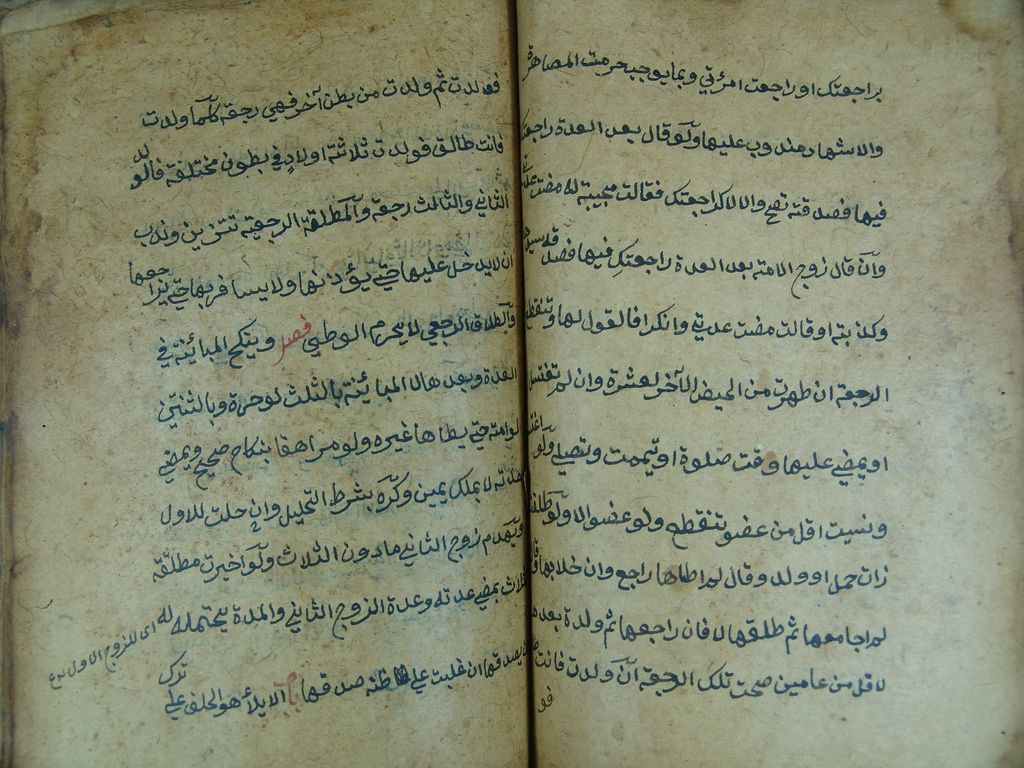 براجعتك او راجعت امرئتي وبما يوجب حرمت المصاهرة
والاشهاد مندوب عليها ولو قال بعد العدة راجعتك
فيها فصدقته تصح والا لا كراجعتك فقالت مجيبة له مضت عدتي
وان قال زوج الامة بعد العدة راجعتك فيها فصدقه سيدها
وكذبته او قالت مضت عدتي وانكرا فالقول لها وتنقطع
الرجعة ان طهرت من الحيض الآخر لعشرة وان لم تغتسل
او يمضي عليها وقت صلوة او تيممت وتصلي ولو اغتسلت
ونسيت اقل من عضو تنقطع ولو عضوا لا ولو طلق
ذات حمل او ولد وقال لم اطاها راجع وان خلا بها وقال
لم اجامعها ثم طلقها لا فان راجعها ثم ولدة بعدها
لاقل من عامين صحت تلك الرجعة ان ولدت فانت طالق
فو
فولدت ثم ولدت من بطن آخر فهي رجعة كلما ولدت
فانت طالق فولدت ثلاثة اولاد في بطون مختلفة فالولد
الثاني والثالث رجعة والمطلقة الرجعية تتزين وندب
ان لا يدخل عليها حتى يؤذنها ولا يسافر بها حتى يراجعها
والطلاق الرجعي لا يحرم الوطئ فصل وينكح المبائنة في
العدة وبعدها لا المبائنة بالثلث لو حرة وبالثنتين
لو امة حتى يطاها غيره ولو مراهقا بنكاح صحيح ويمضي
عدته لا بملك يمين وكره بشرط التحليل وان حلت للاول
ويهدم زوج الثاني مادون الثلاث ولو اخبرت مطلقة
الثلاث بمضي عدته وعدة الزوج الثاني والمدة يحتمله له
اى للزوج الاول
ترك
ان يصدقها ان غلبت على ظنه صدقها باب الايلاء هو الحلف على